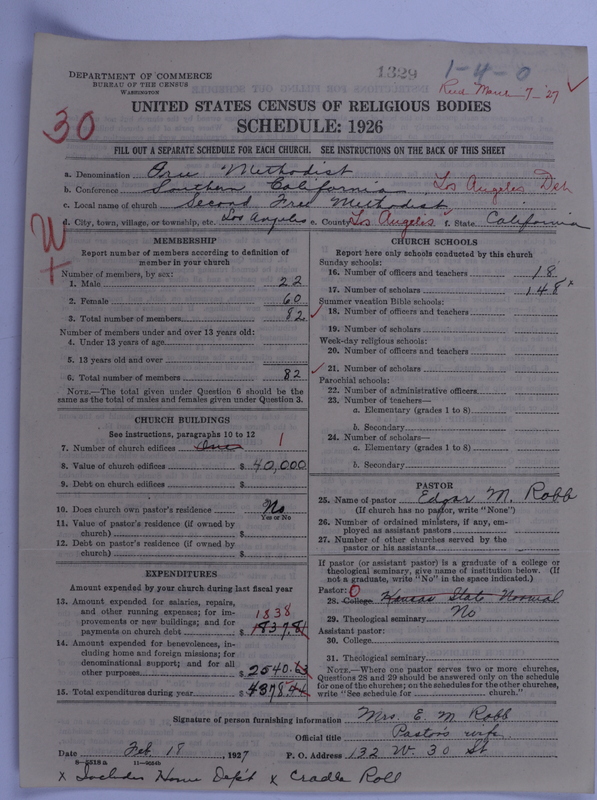 1329
1-4-0
DEPARTMENT OF COMMERCE
BUREAU OF THE CENSUS
WASHINGTON
Recd March 7-'27
UNITED STATES CENSUS OF RELIGIOUS BODIES
30
SCHEDULE: 1926
FILL OUT A SEPARATE SCHEDULE FOR EACH CHURCH. SEE INSTRUCTIONS ON THE BACK OF THIS SHEET
a. Denomination Free Methodist
b. Conference Southern California Los Angeles Dist
c. Local name of church Second Free Methodist
d. City, town, village, or township, etc. Los Angeles e. County Los Angelis f. State California
W
MEMBERSHIP
Report number of members according to definition of
member in your church
Number of members, by sex:
1. Male 22
2. Female 60
3. Total number of members 82
Number of members under and over 13 years old:
4. Under 13 years of age
5. 13 years old and over
6. Total number of members 82
NOTE.—The total given under Question 6 should be
same as the total of males and females given under Question 3.
CHURCH BUILDINGS
See instructions, paragraphs 10 to 12
7. Number of church edifices One 1
8. Value of church edifices $ 40,000
9. Debt on church edifices $
10. Does church own pastor's residence No
Yes or No
11. Value of pastor's residence (if owned by
church) $
12. Debt on pastor's residence (if owned by
church) $
EXPENDITURES
Amount expended by your church during last fiscal year
13. Amount expended for salaries, repairs,
and other running expenses; for im-
provements or new buildings; and for 1838
payments on church debt $ 1837.81
14. Amount expended for benevolences, in-
cluding home and foreign missions; for
denominational support; and for all
other purposes $ 2540.63
15. Total expenditures during year $ 4378.44
CHURCH SCHOOLS
Report here only schools conducted by this church
Sunday schools:
16. Number of officers and teachers 18
17. Number of scholars 148 x
Summer vacation Bible schools:
18. Number of officers and teachers
19. Number of scholars
Week-day religious schools:
20. Number of officers and teachers
21. Number of scholars
Parochial schools:
22. Number of administrative officers
23. Number of teachers—
a. Elementary (grades 1 to 8)
b. Secondary
24. Number of scholars—
a. Elementary (grades 1 to 8)
b. Secondary
PASTOR
25. Name of pastor Edgar M. Robb
(If church has no pastor, write "None")
26. Number of ordained ministers, if any, em-
ployed as assistant pastors
27. Number of other churches served by the
pastor or his assistants
If pastor (or assistant pastor) is a graduate of a college or
theological seminary, give name of institution below. (If
not a graduate, write "No" in the space indicated.)
Pastor: 0
28. College Kansas State Normal
29. Theological seminary No
Assistant pastor:
30. College
31. Theological seminary
NOTE.—Where one pastor serves two or more churches,
Questions 28 and 29 should be answered only on the schedule
for one of the churches; on the schedules for the other churches,
write "See schedule for church."
Signature of person furnishing information Mrs. E. M. Robb
Official title Pastor's wife
Date Feb. 18, 1927 P. O. Address 132 W. 30 St
x Includes Home Dep't x Cradle Roll